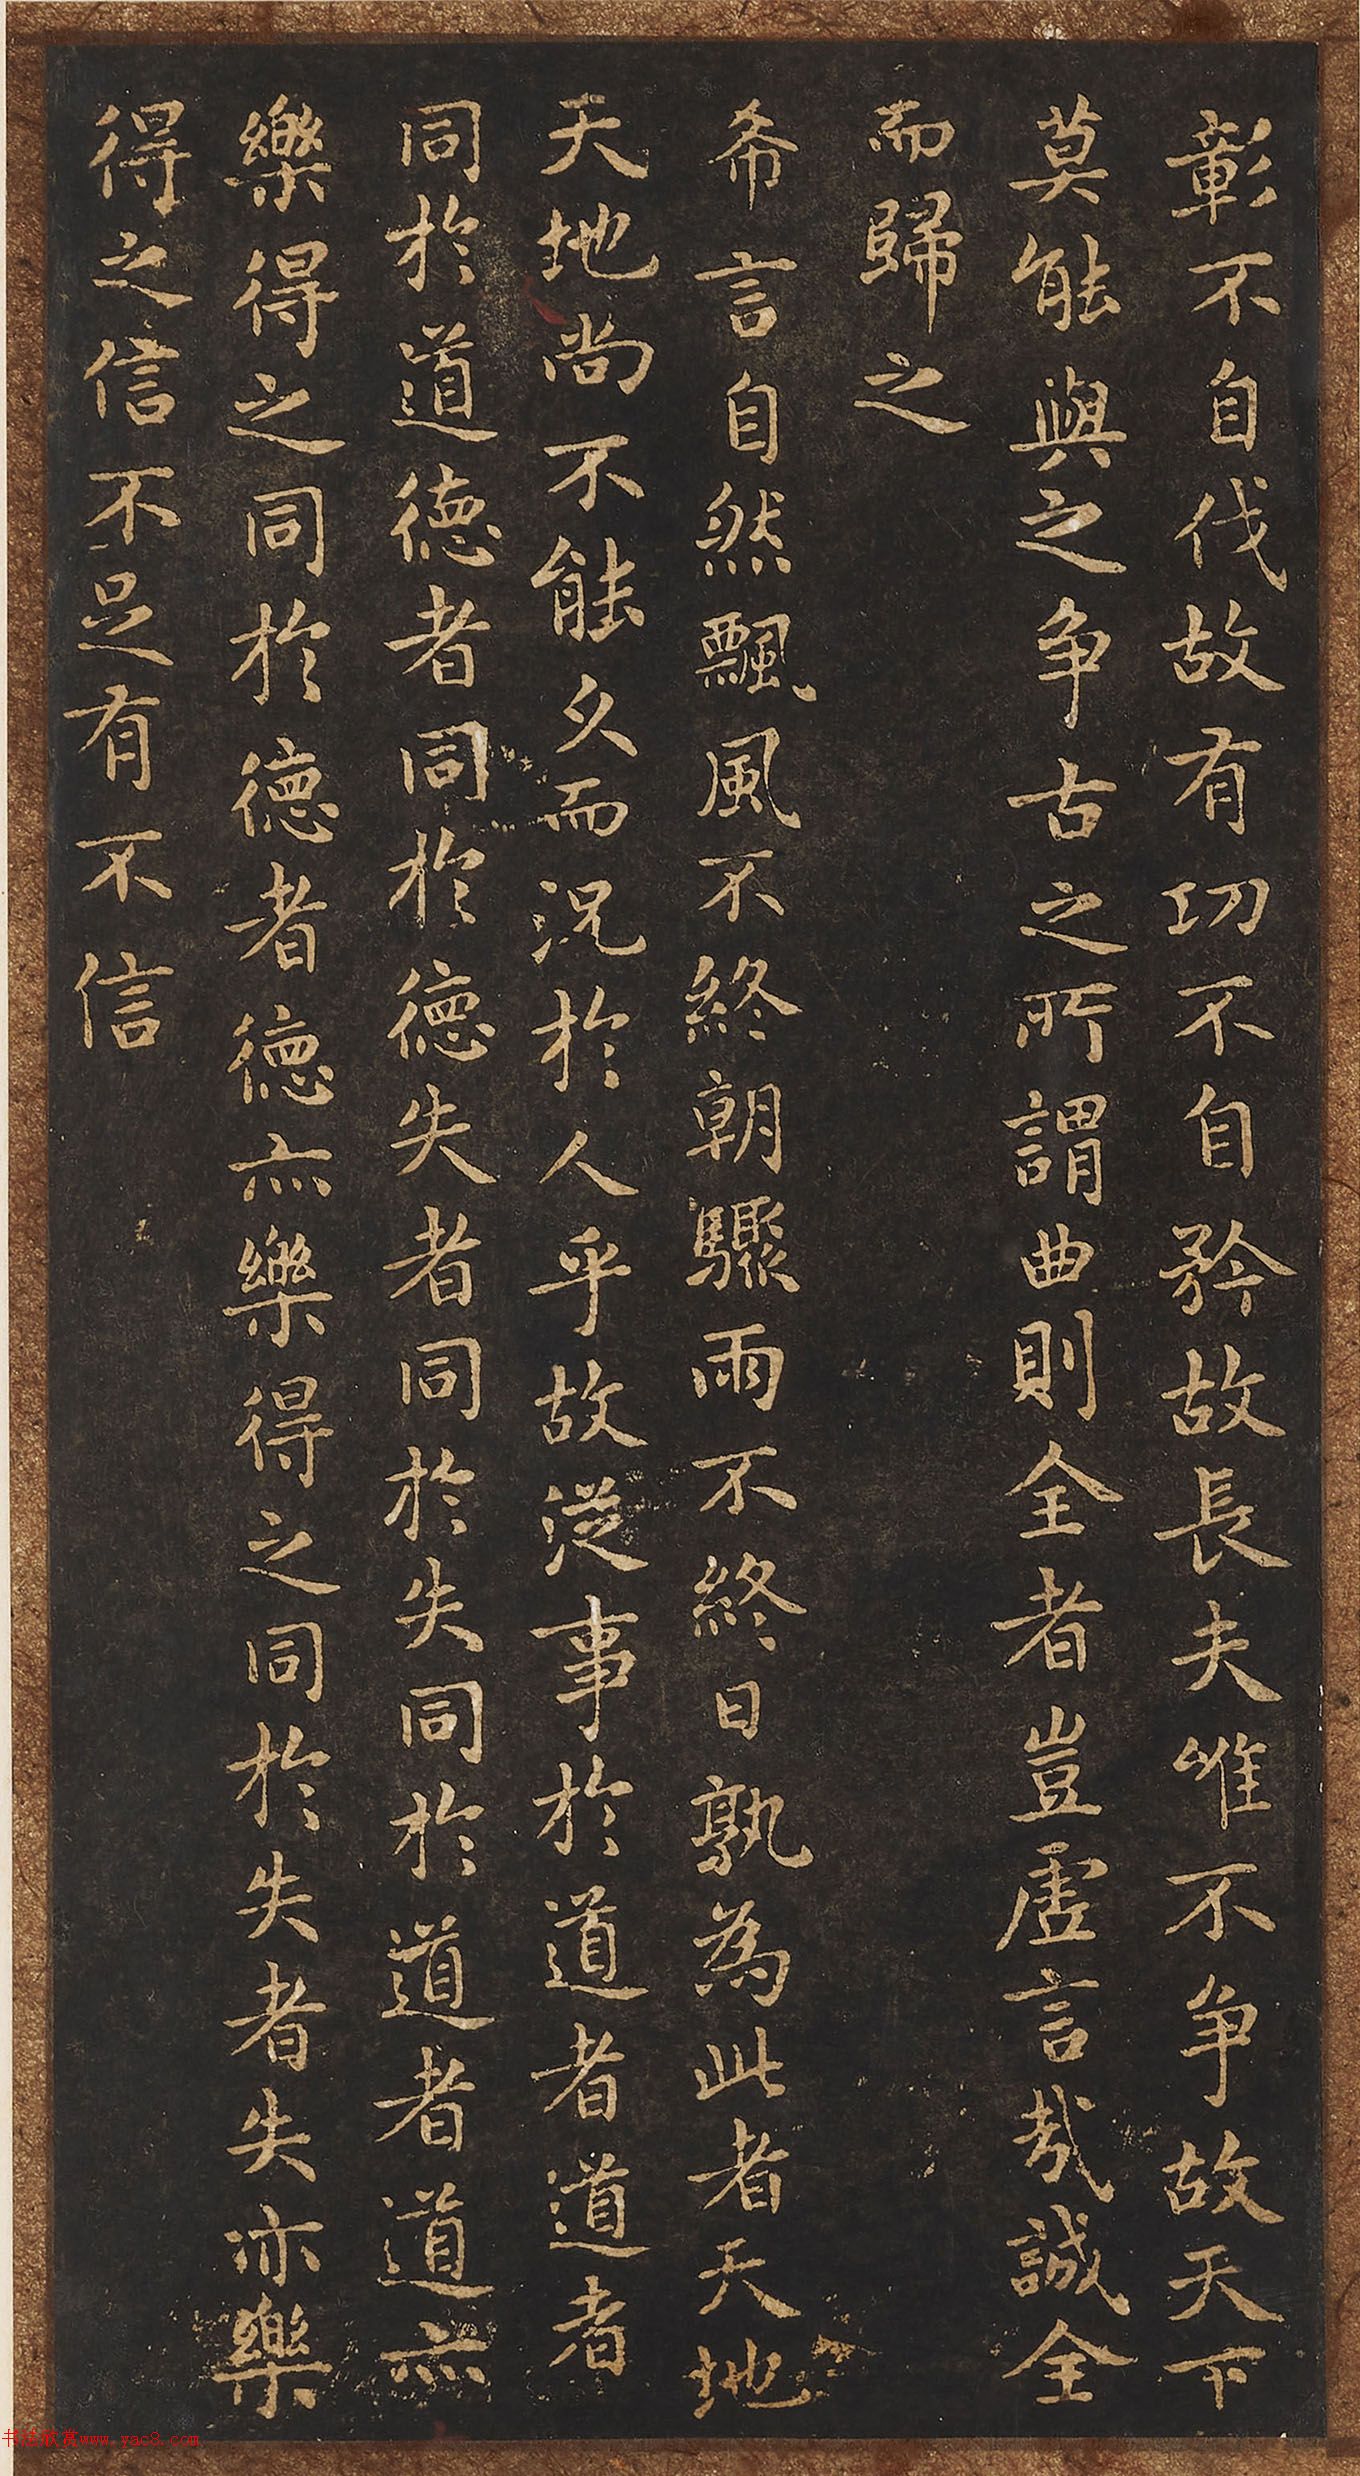 彰不自伐故有功不自矜故長夫唯不争故天下
莫能與之争古之所謂曲則全者豈虚言哉誠全
而歸之
希言自然飄風不終朝驟雨不終日孰為此者天地
天地尚不能久而況於人乎故従事於道者道者
同於道德者同於德失者同於失同於道者道亦
樂得之同於德者德亦樂得之同於失者失亦樂
得之信不足有不信
书法欣赏www.yac8.com